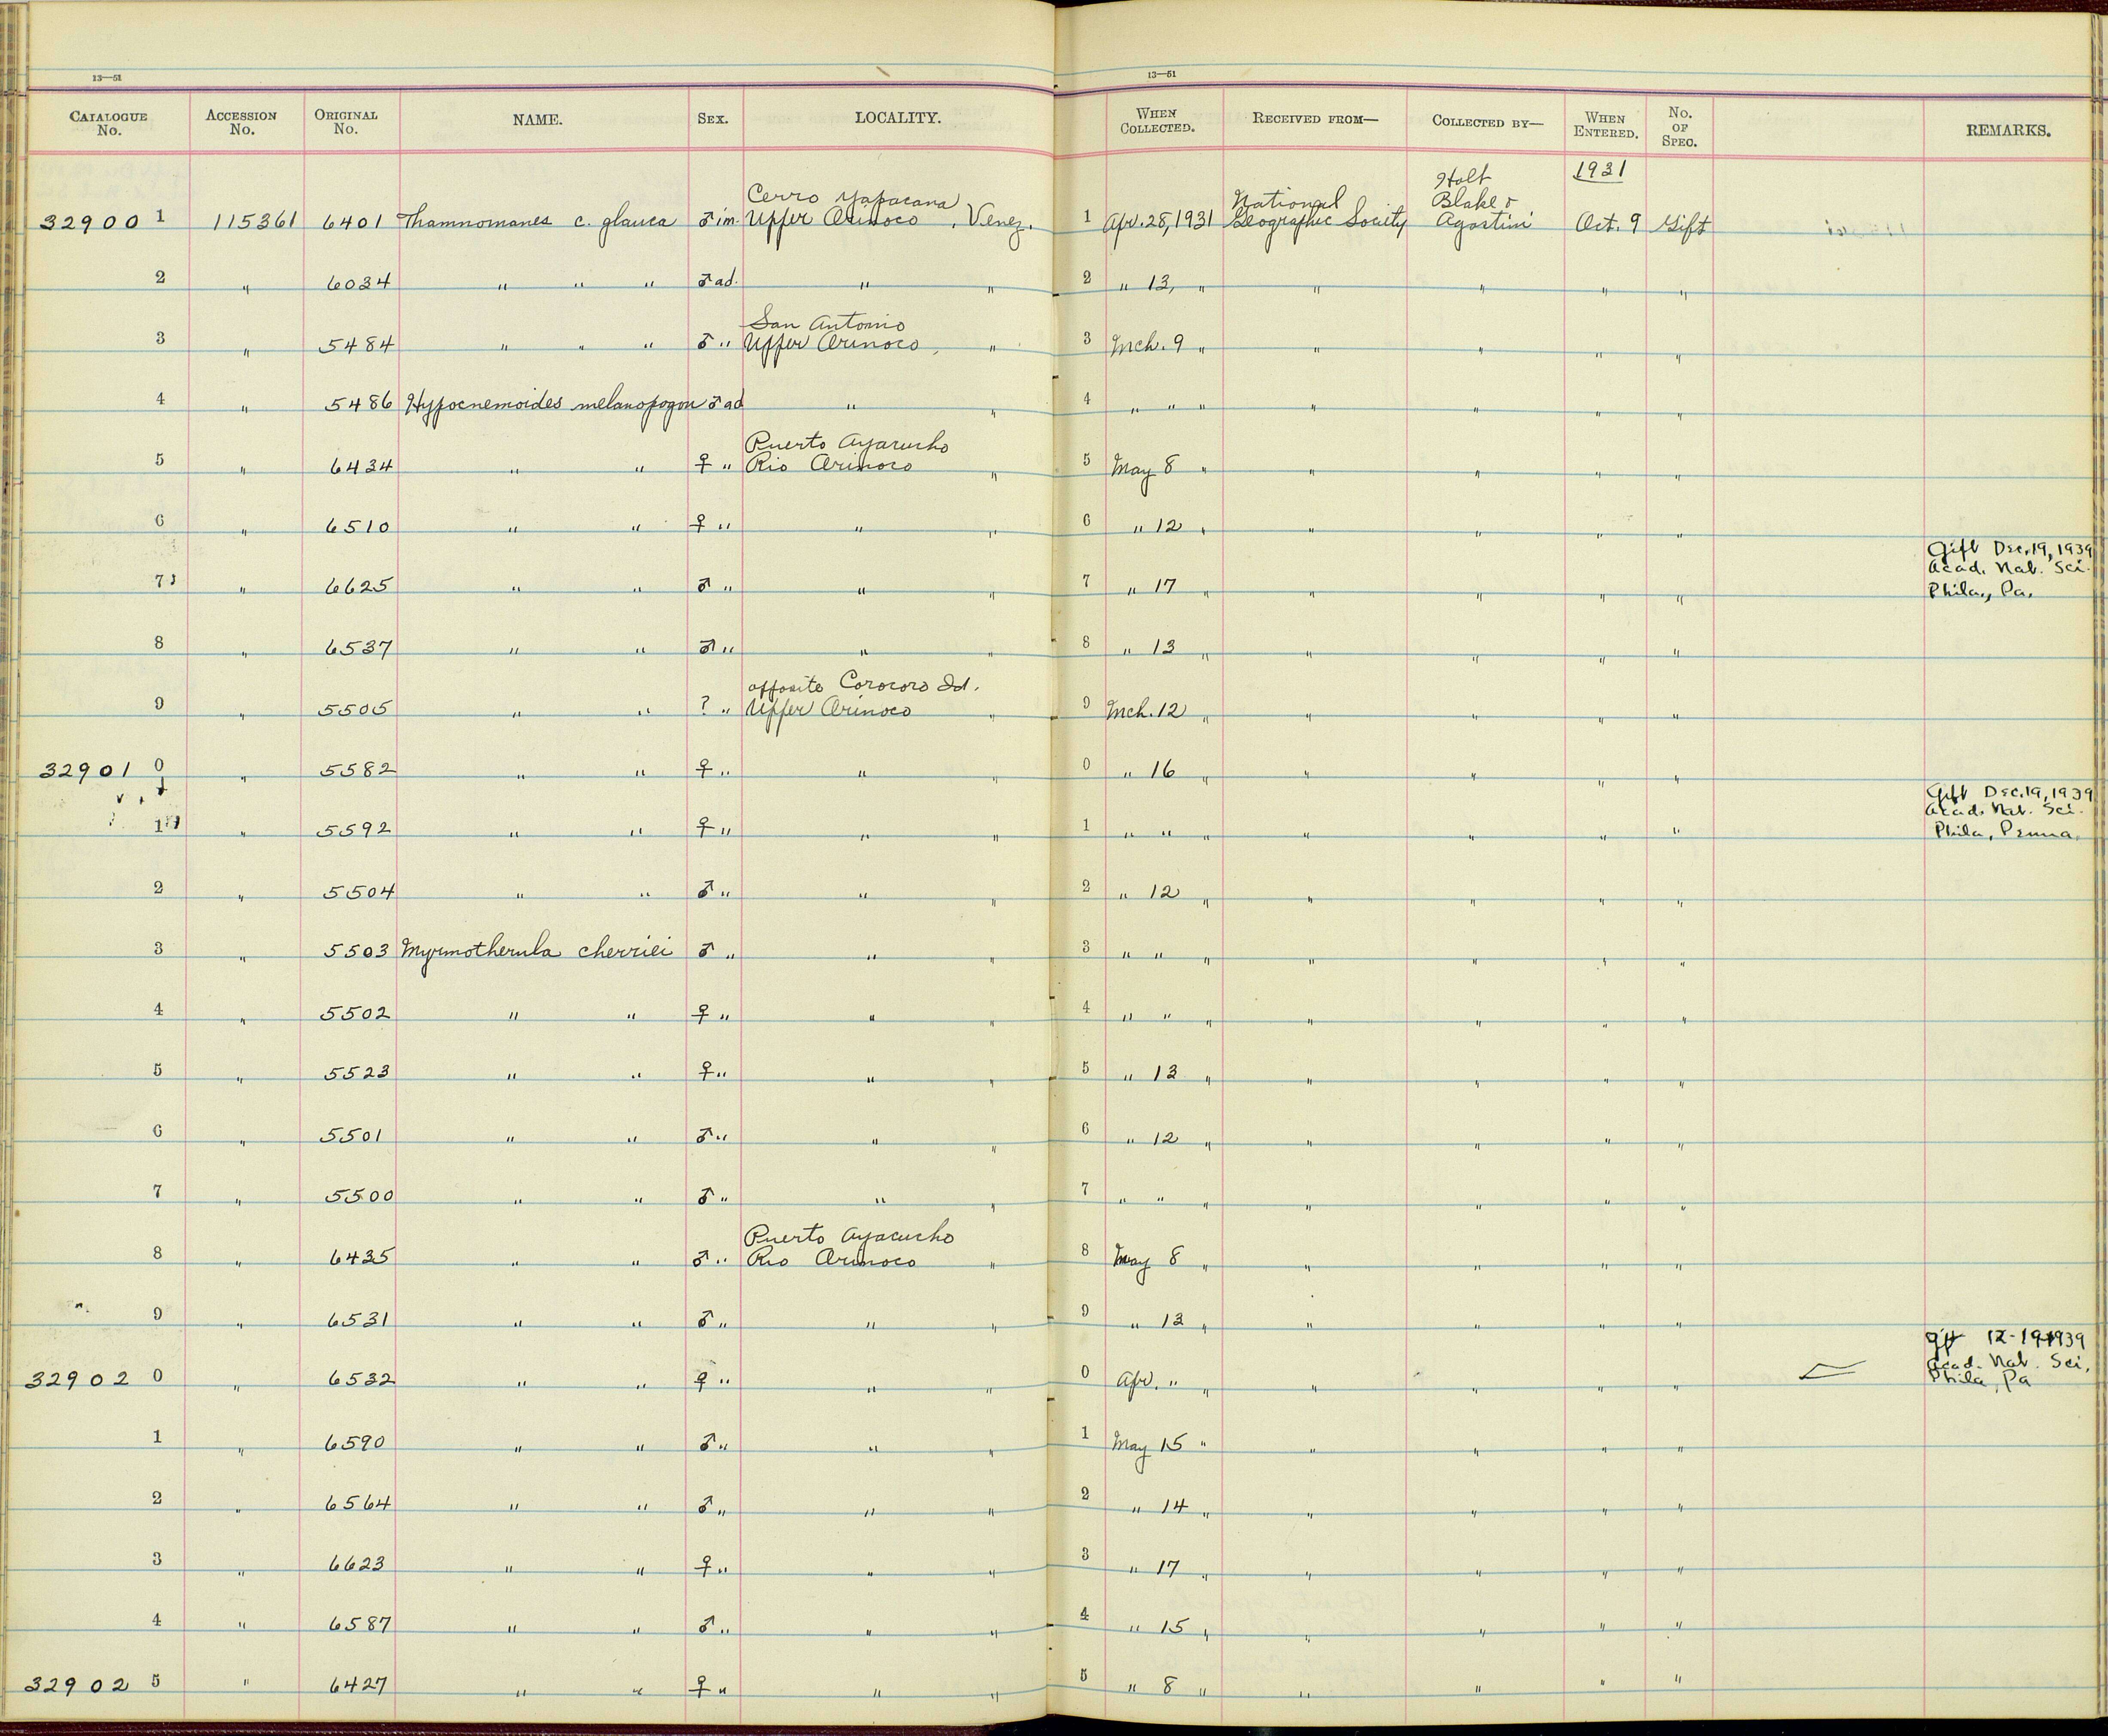 13—51 13—51
CATALOGUE No. ACCESSION No. ORIGINAL No. NAME. SEX. LOCALITY. WHEN COLLECTED. RECEIVED FROM— COLLECTED BY— WHEN ENTERED. No. OF SPEC. REMARKS.
1931
Cerro Yapacana National Holt Blake &
32900 1 115361 6401 Thamnomanes c. glauca ♂ im. Upper Orinoco, Venez. 1 Apr. 28, 1931 Geographic Society Agostini Oct. 9 Gift
2 " 6034 " " " ♂ ad. " " 2 " 13, " " " " "
San Antonio
3 " 5484 " " " ♂ " Upper Orinoco, " 3 Mch. 9 " " " " "
4 " 5486 Hypocnemoides melanopogon ♂ ad " " 4 " " " " " " "
Puerto Ayacucho
5 " 6434 " " ♀ " Rio Orinoco " 5 May 8 " " " " "
6 " 6510 " " ♀ " " " 6 " 12 " " " " "
Gift Dec. 19, 1939
Acad. Nat. Sci.
7 " 6625 " " ♂ " " " 7 " 17 " " " " " Phila., Pa.
8 " 6537 " " ♂ " " " 8 " 13 " " " " "
opposite Corocoro Isl.
9 " 5505 " " ? " Upper Orinoco " 9 Mch. 12 " " " " "
32901 0 " 5582 " " ♀ " " " 0 " 16 " " " " "
Gift Dec. 19, 1939
Acad. Nat. Sci.
1 " 5592 " " ♀ " " " 1 " " " " " " Phila, Penna.
2 " 5504 " " ♂ " " " 2 " 12 " " " " "
3 " 5503 Myrmotherula cherriei ♂ " " " 3 " " " " " " "
4 " 5502 " " ♀ " " " 4 " " " " " " "
5 " 5523 " " ♀ " " " 5 " 13 " " " " "
6 " 5501 " " ♂ " " " 6 " 12 " " " " "
7 " 5500 " " ♂ " " " 7 " " " " " " "
Puerto Ayacucho
8 " 6435 " " ♂ " Rio Orinoco " 8 May 8 " " " " "
9 " 6531 " " ♂ " " " 9 " 13 " " " " "
Gift 12-19-1939
Acad. Nat. Sci,
32902 0 " 6532 " " ♀ " " " 0 Apr. " " " " " " Phila, Pa
1 " 6590 " " ♂ " " " 1 May 15 " " " " "
2 " 6564 " " ♂ " " " 2 " 14 " " " " "
3 " 6623 " " ♀ " " " 3 " 17 " " " " "
4 " 6587 " " ♂ " " " 4 " 15 " " " " "
32902 5 " 6427 " " ♀ " " " 5 " 8 " " " " "